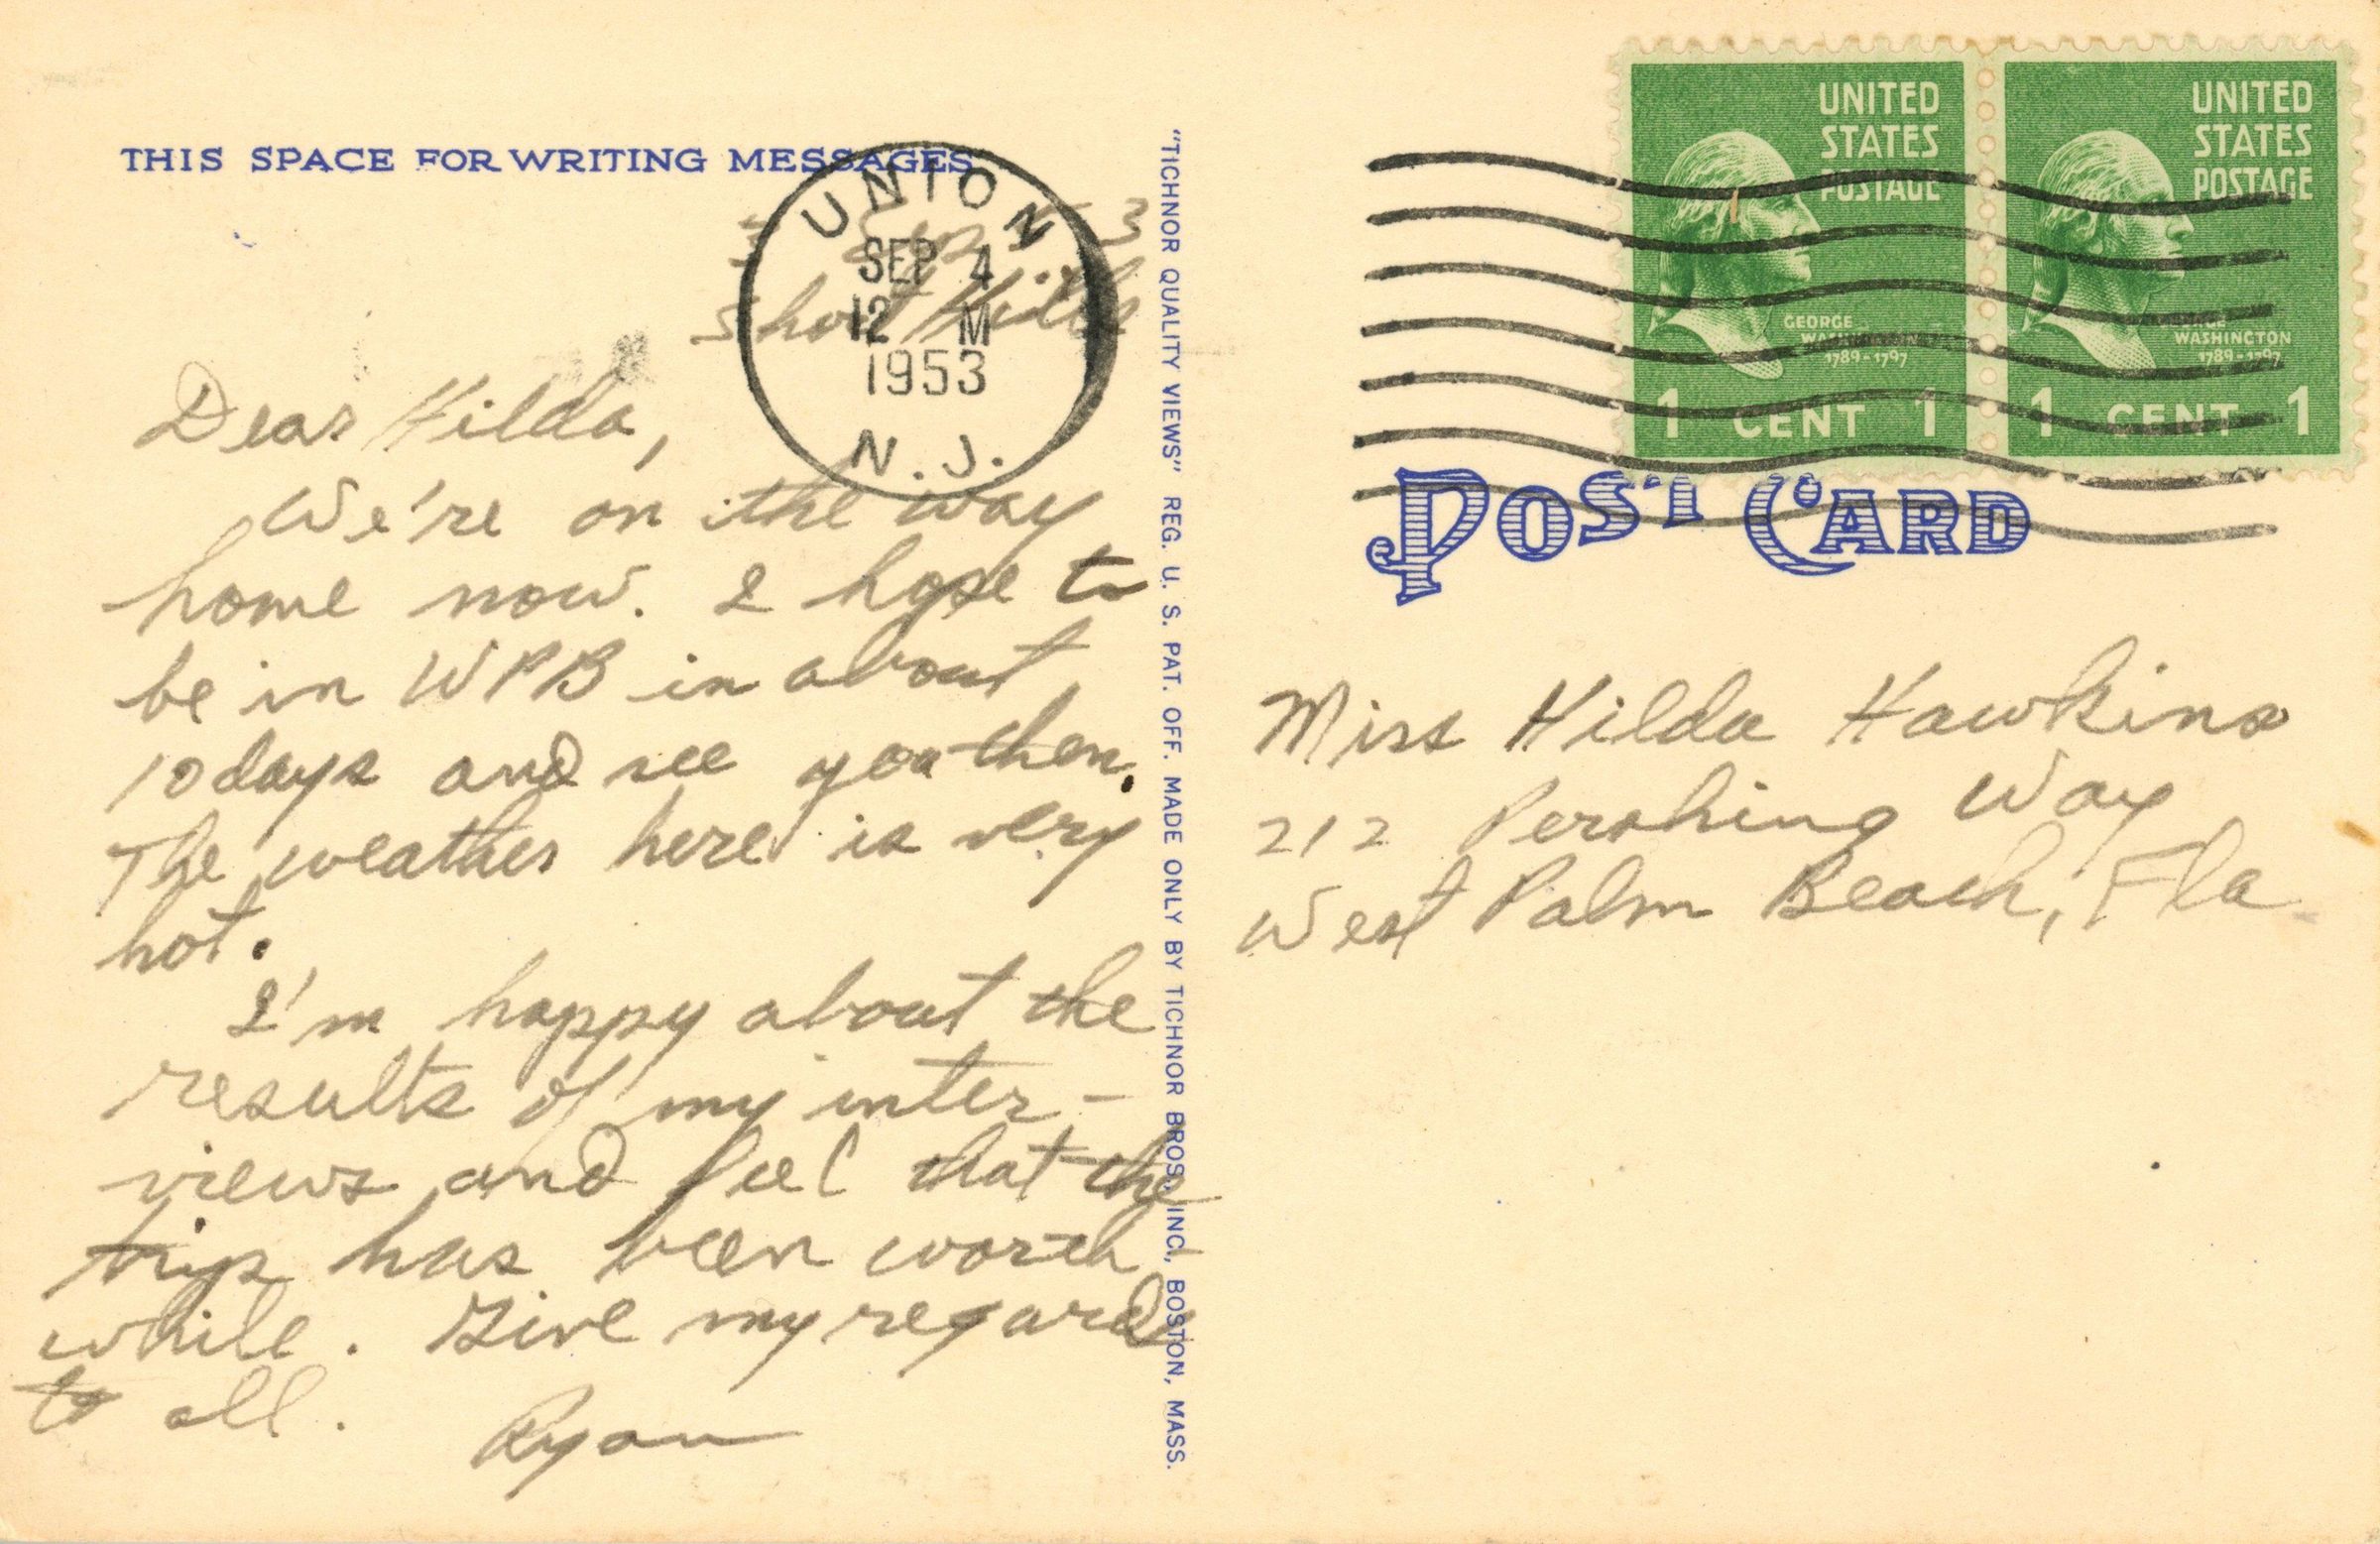 THIS SPACE FOR WRITING MESSAGES
UNION
SEP 4
12 M
1953
N.J.
Short Hills
Dear Hilda,
We're on the way
home now. I hope to
be in WPB in about
10 days and see you then.
The weather here is very
hot.
I'm happy about the
results of my inter-
views and feel that the
trip has been worth
while. Give my regards
to all.
Ryan
"TICHNOR QUALITY VIEWS" REG. U. S. PAT. OFF. MADE ONLY BY TICHNOR BROS., INC., BOSTON, MASS.
UNITED
STATES
POSTAGE
GEORGE
WASHINGTON
1789-1797
1 CENT 1
UNITED
STATES
POSTAGE
GEORGE
WASHINGTON
1789-1797
1 CENT 1
POST CARD
Miss Hilda Hawkins
212 Pershing Way
West Palm Beach, Fla.